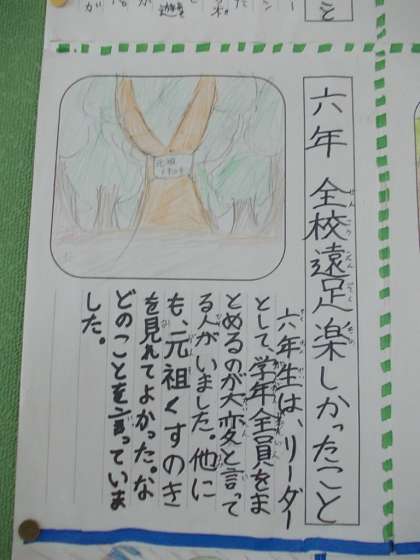 六年 全校遠足楽しかったこと
六年生は、リーダー
として、学年全員をま
とめるのが大変と言って
る人がいました。他に
も、元祖くすのき
を見れてよかった。な
どのことを言っていま
した。
元祖